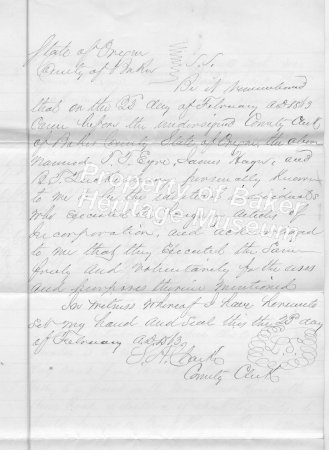 State of Oregon
County of Baker S.S.
Be it Remembered
that on the 23d day of February A.D. 1863
Came before the undersigned County Clerk
of Baker County State of Oregon the above
named J. J. Eyre, James Hager, and
B. F. personally known
to me to be the identical individuals
who executed the articles of
incorporation, and acknowledged
to me that they executed the same
freely and voluntarily for the uses
and purposes therein mentioned
In witness whereof I have hereunto
set my hand and seal this the 23d day
of February A.D. 1863
Clark
County Clerk
Property of Baker
Heritage Museum